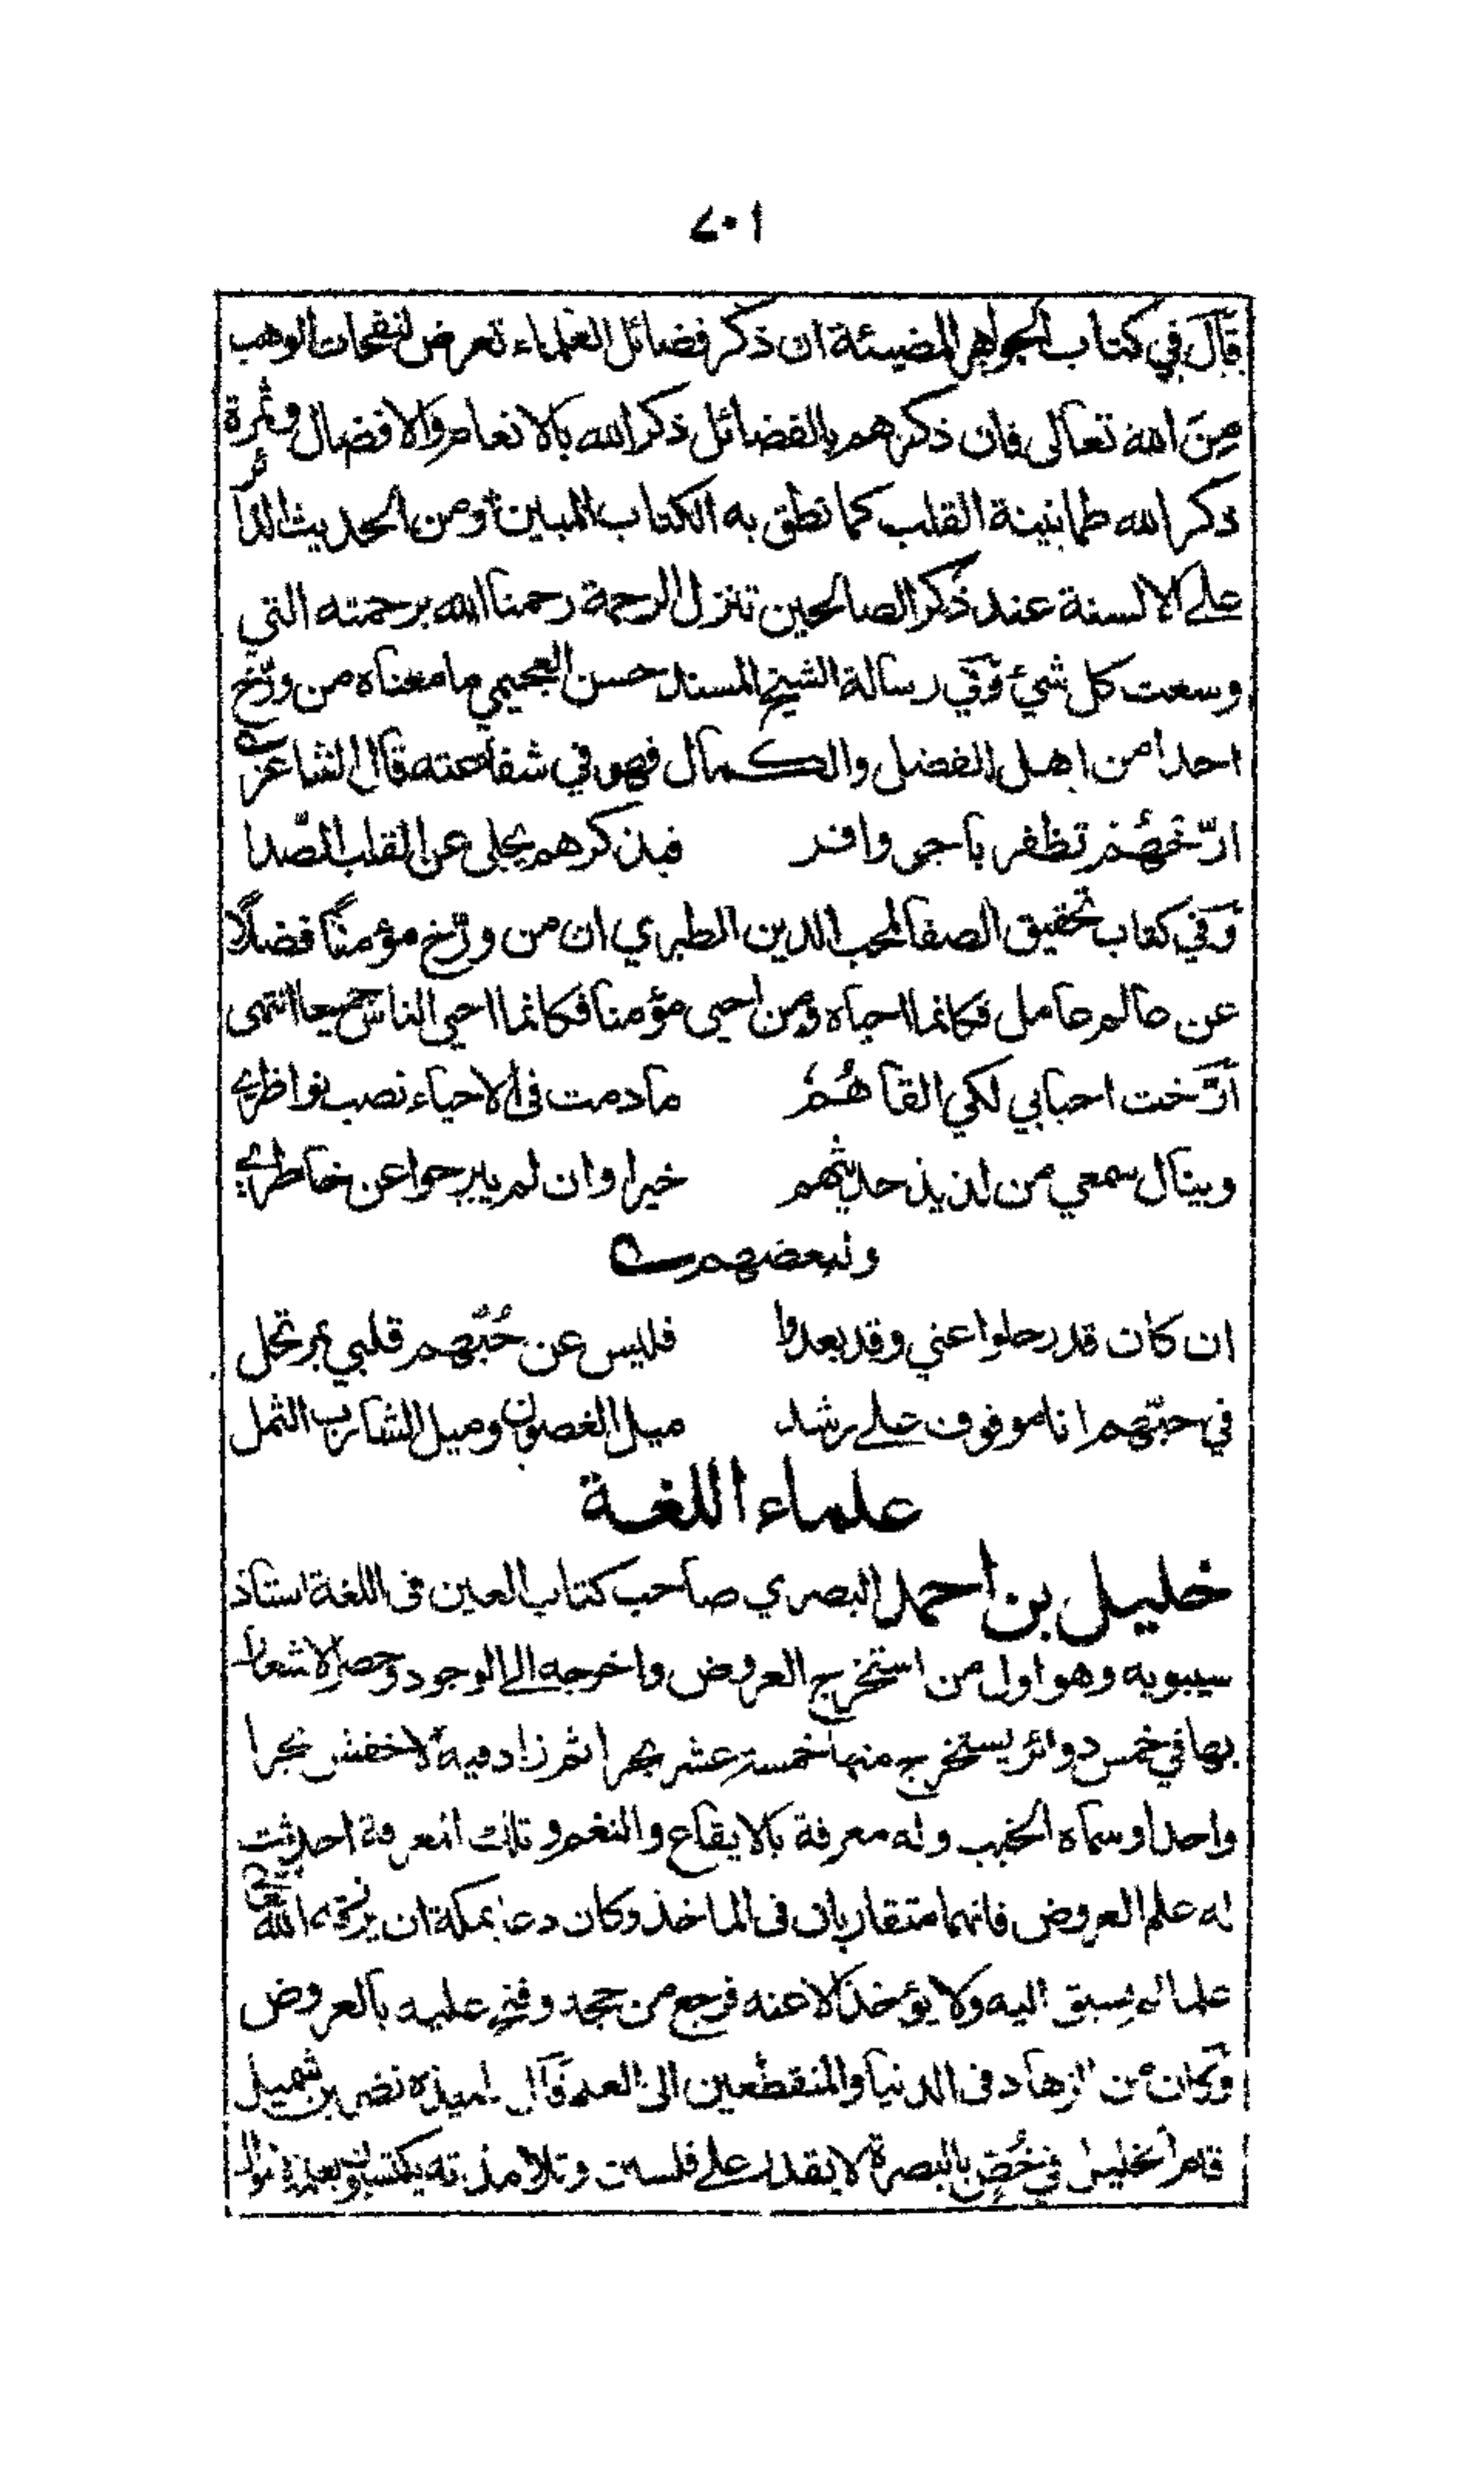 ٧٠١
قال في كتاب الجواهر المضيئة ان ذكر فضائل العلماء تعرض لنفحات الوهب
من الله تعالى فان ذكرهم بالفضائل ذكر الله بالانعام والافضال وثمرة
ذكر الله طمانينة القلب كما نطق به الكتاب المبين ومن الحديث الدائر
على الالسنة عند ذكر الصالحين تنزل الرحمة رحمنا الله برحمته التي
وسعت كل شيء وفي رسالة الشيخ المسند حسن العجيمي ما معناه من ورّخ
احدا من اهل الفضل والكمال فهو في شفاعته قال الشاعر
ارّخهُمُ تظفر باجر وافر فبذكرهم يجلى عن القلب الصّدا
وفي كتاب تحقيق الصفا لمحب الدين الطبري ان من ورّخ مؤمنًا فضلًا
عن عالم عامل فكانما احياه ومن احيى مؤمنا فكانما احيى الناس جميعا انتهى
ارّخت احبابي لكي القاهُمُ ما دمت في الاحياء نصب نواظري
وينال سمعي من لذيذ حديثهم خيرا وان لم يبرحوا عن خاطري
ولبعضهم
ان كان قد رحلوا عني وقد بعدوا فليس عن حُبّهم قلبي بمرتحل
في حبّهم انا موقوف على رشد ميل الغصون وميل الشارب الثمل
علماء اللغة
خليل بن احمد البصري صاحب كتاب العين في اللغة استاذ
سيبويه وهو اول من استخرج العروض واخرجه الى الوجود وحصر الاشعار
بها في خمس دوائر يستخرج منها خمسة عشر بحرا ثم زاد فيه الاخفش بحرا
واحدا وسماه الخبب وله معرفة بالايقاع والنغم وتلك المعرفة احدثت
له علم العروض فانهما متقاربان في الماخذ وكان دعا بمكة ان يرزقه الله تعالى
علما لم يسبق اليه ولا يؤخذ الا عنه فرجع من حجه وفتح عليه بالعروض
وكان من الزهاد في الدنيا والمنقطعين الى العلم قال تلميذه نضر بن شميل
قام الخليل في خُصّ بالبصرة لا يقدر على فلسين وتلامذته يكتسبون بعلمه